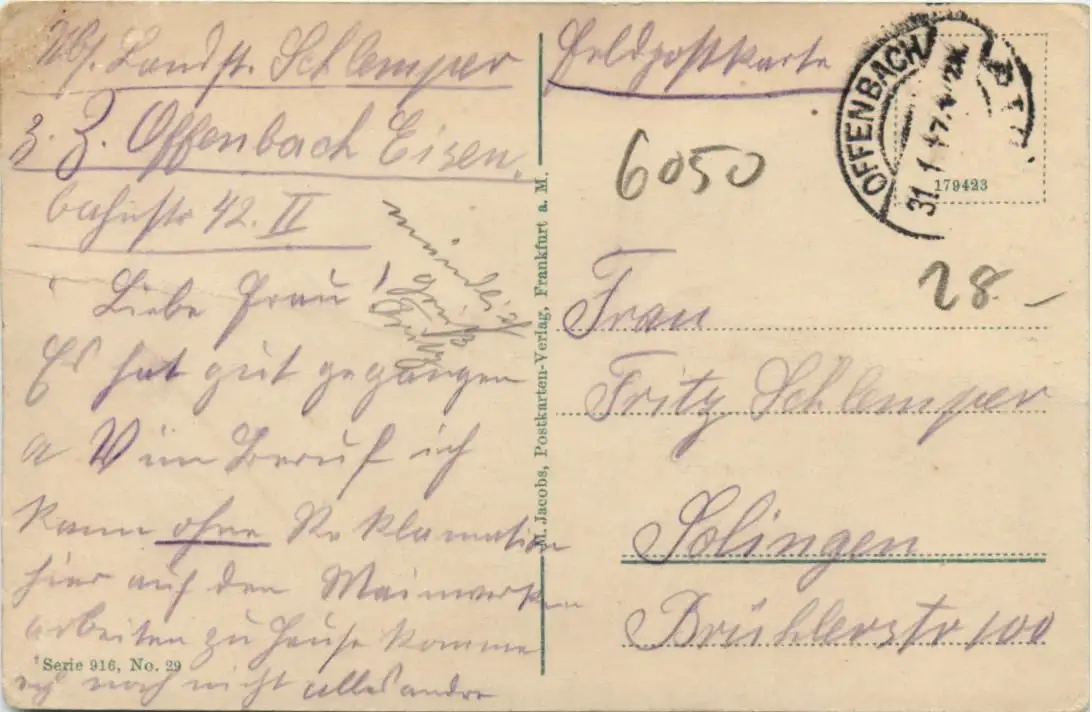 Abs. Landst. Schlemper
z. Z. Offenbach Eisen-
bahnstr 42. II
Liebe Frau!
Es hat gut gegangen
a V im Beruf ich
kann ohne Reklamation
hier auf den Mainwerken
arbeiten zu Hause komme
ich noch nicht alles andre
mündlich
Gruß
Fritz
Serie 916, No. 29
M. Jacobs, Postkarten-Verlag, Frankfurt a. M.
Feldpostkarte
6050
OFFENBACH
31. 1. 17.
179423
28.-
Frau
Fritz Schlemper
Solingen
Brühlerstr 100